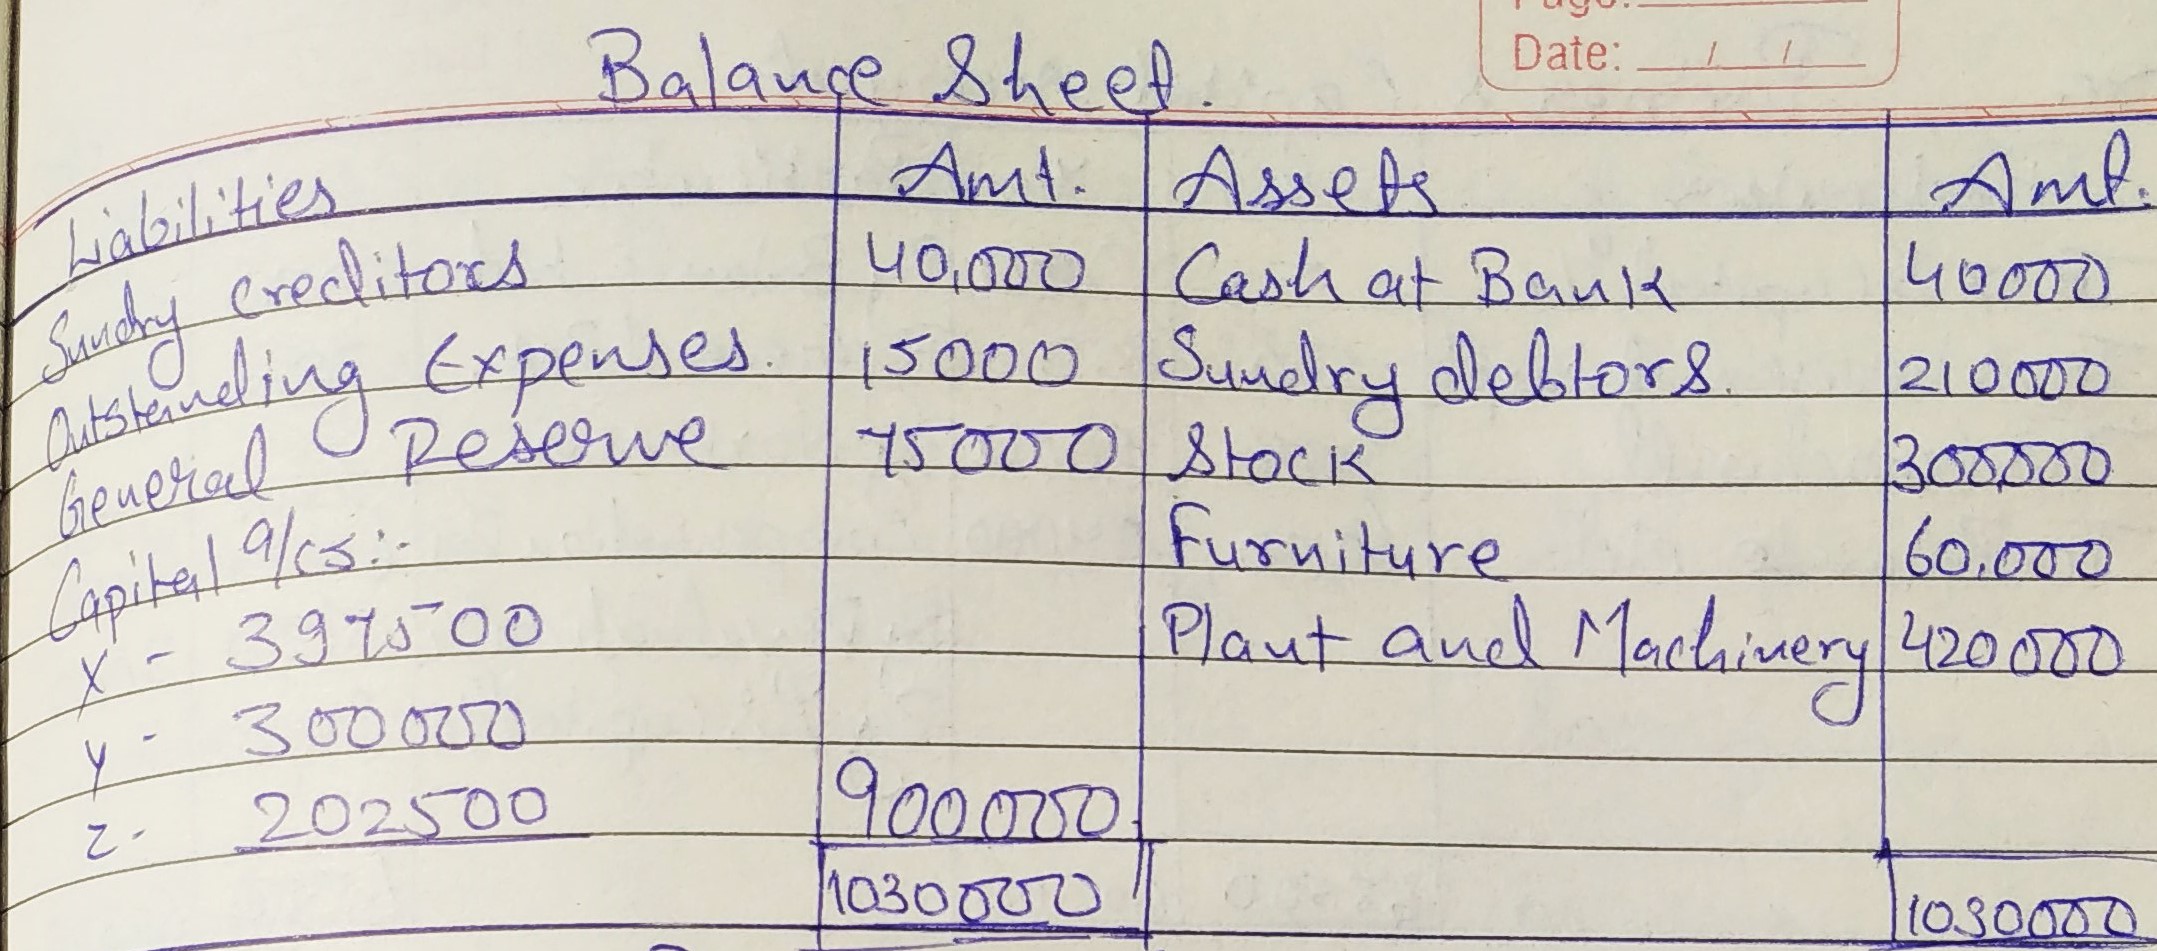 Date: / /
Balance Sheet.
Liabilities Amt. Assets Amt.
Sundry Creditors 40,000 Cash at Bank 40000
Outstanding Expenses. 15000 Sundry debtors. 210000
General Reserve 75000 Stock 300,000
Capital a/cs:- Furniture 60,000
X - 397500 Plant and Machinery 420000
Y - 300000
Z - 202500 900000
1030000 1030000